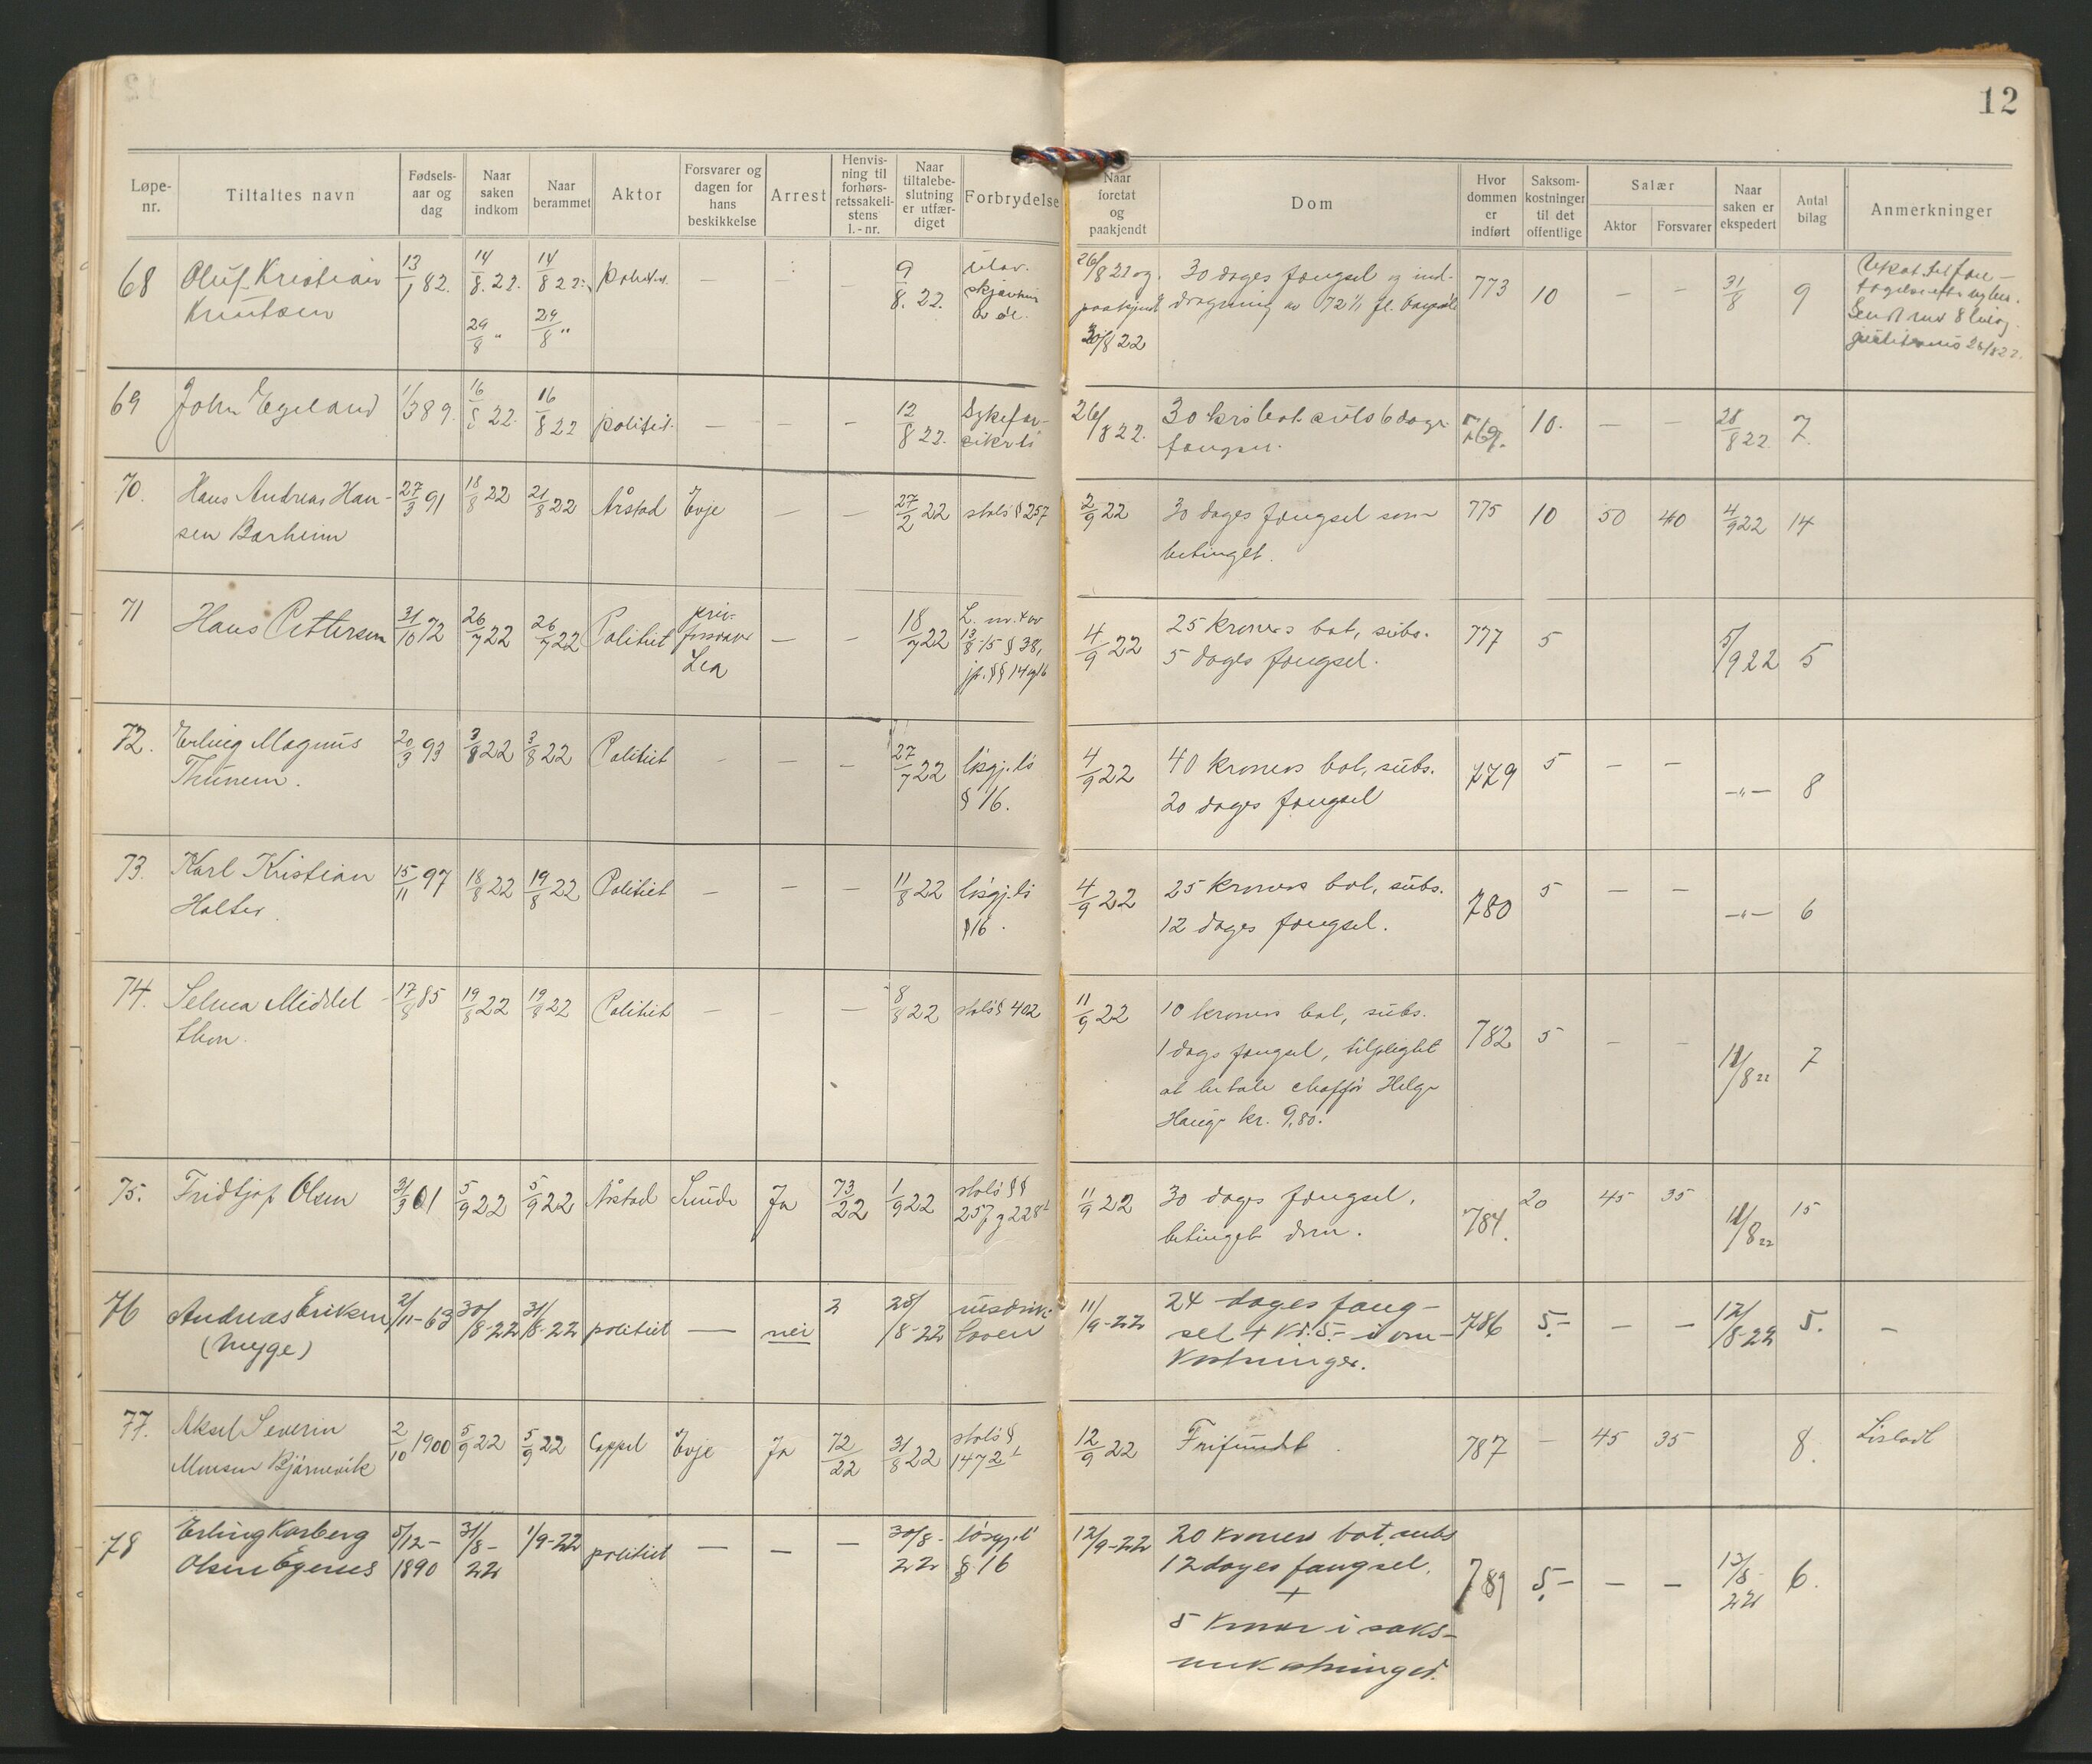 12
Løpe-nr. Tiltaltes navn Fødsels-aar og dag Naar saken indkom Naar berammet Aktor Forsvarer og dagen for hans beskikkelse Arrest Henvis-ning til forhørs-retssakeli-stens l.-nr. Naar tiltalebe-slutning er utfær-diget Forbrydelse Naar foretat og paakjendt Dom Hvor dommen er indført Saksom-kostninger til det offentlige Salær Aktor Forsvarer Naar saken er ekspedert Antal bilag Anmerkninger
68 Oluf Kristian 13/1 82. 14/8. 22. 14/8 22. politiet — — 9/8. 22. ulov. 26/8 22 og 30 dages fængsel og ind- 773 10 — — 31/8 9
Knutsen 29/8 " 29/8 " paakjendt dragning av 72 1/1 fl.
30/8 22
69 John Egeland 1/3 89. 16/8 22. 16/8 22 politiet. — — — 12/8 22. Sykefor- 26/8 22. 30 krs bot subs 6 dage 769. 10. — — 28/8 22. 7.
sikrls fængsel.
70. Hans Andreas Han- 27/3 91 18/8 22 21/8 22 Årstad Evje — — 27/2 22 strls § 257 2/9 22 30 dages fængsel 775 10 50 40 4/9 22 14
sen Barheim betinget.
71 Hans Pettersen 31/10 72 26/7 22 26/7 22 Politiet priv. — — 18/7 22 L. nr. 4 av 4/9 22 25 kroners bot, subs. 777 5 5/9 22 5
forsvarer 13/8 -15 § 38, 5 dages fængsel.
Lea jfr. §§ 14 og 16
72. Erling Magnus 20/3 93 3/8 22 3/8 22 Politiet — — — 27/7 22 løsgj.ls 4/9 22 40 kroners bot, subs. 779 5 — — —"— 8
Thunem. § 16. 20 dages fængsel
73. Karl Kristian 15/11 97 18/8 22 19/8 22 Politiet — — — 11/8 22 løsgj.ls 4/9 22 25 kroners bot, subs. 780 5 — — —"— 6
Halter. § 16. 12 dages fængsel.
74. Selma Middel- 17/8 85 19/8 22 19/8 22 Politiet — — — 8/8 22 strls § 402 11/9 22 10 kroners bot, subs. 782 5 — — 12/8 22 7
thon. 1 dags fængsel, tilpligtet
at betale chaffør Helge
Hauge kr. 9,80.
75. Fridtjof Olsen 31/3 01 5/9 22 5/9 22 Årstad Sunde Ja 73/22 1/9 22 strls §§ 11/9 22 30 dages fængsel, 784. 20 45 35 12/8 22 15
257 og 228 1 betinget dom.
76 Andreas Eriksen 2/11-63 30/8-22 31/8-22 politiet — nei 2 28/8-22 rusdrikk 11/9-22 24 dages fæng- 786 5.- — — 12/8-22 5. —
(Mygge) loven sel + Kr. 5.- i om-
kostninger.
77. Aksel Severin 2/10 1900 5/9 22 5/9 22 Cappel Evje Ja 72/22 31/8 22 strls § 12/9 22 Frifundt. 787 — 45 35 8.
Monsen Bjørnevik 147 2 1
78 Erling Karberg 5/12- 31/8- 1/9-22 politiet — — — 30/8- løsgj.l 12/9-22 20 kroners bot, subs 789 5.- — — 13/8- 6.
Olsen Egenes 1890 22 22 § 16 12 dages fængsel. 22
+
5 kroner i saks-
omkostninger.